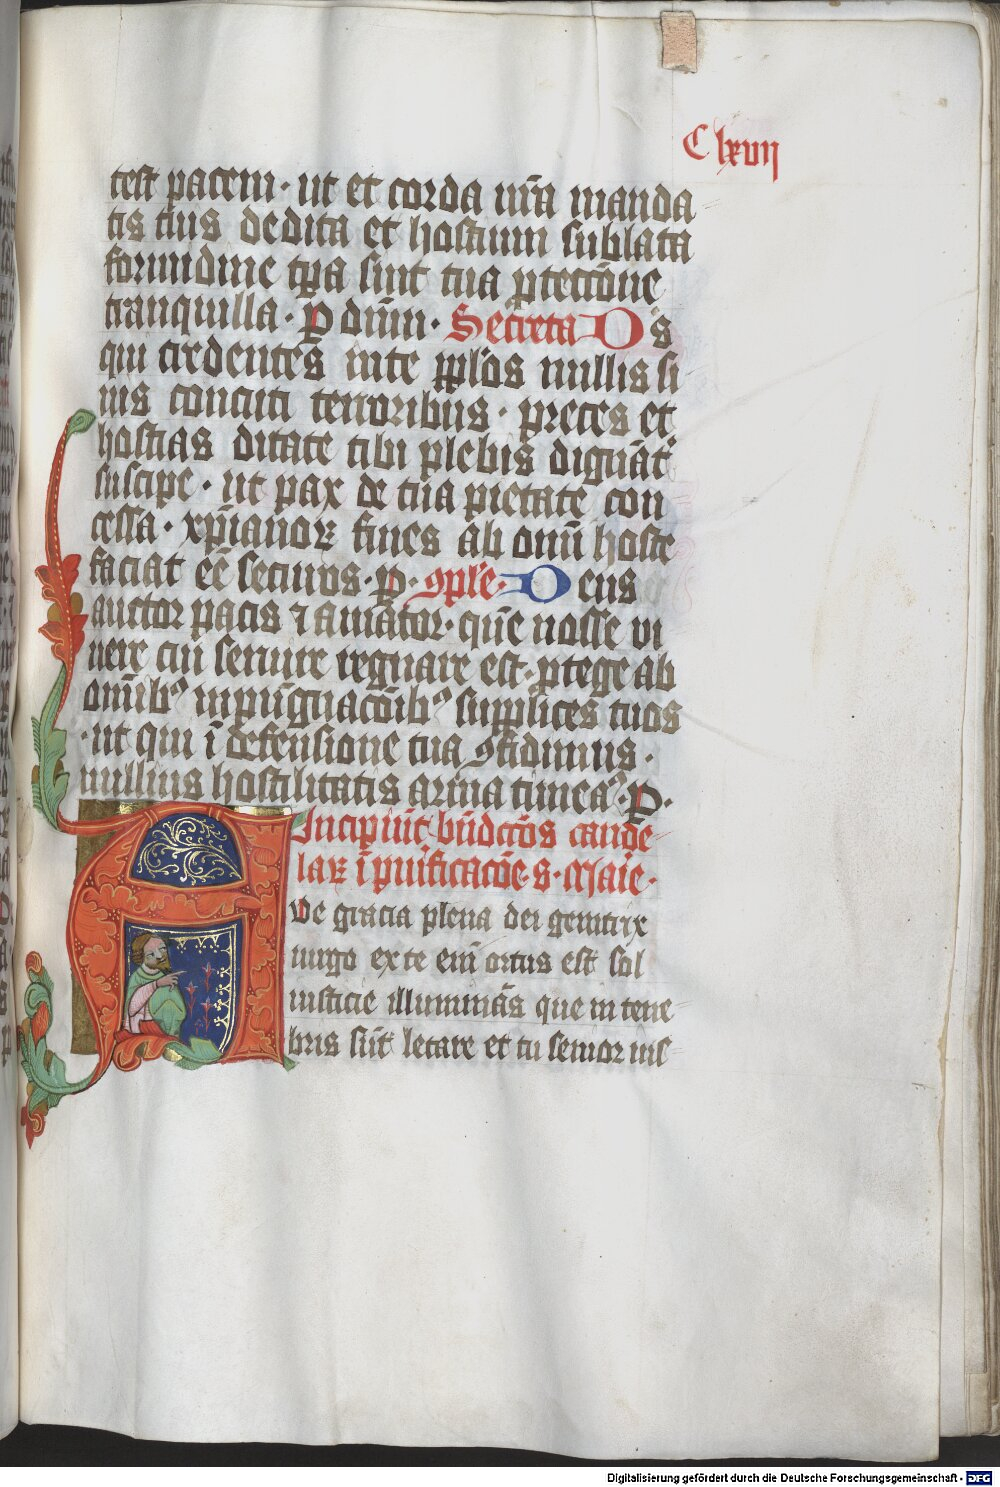 Clxvij
test pacem · ut et corda nr̄a manda
tis tuis dedita et hostium sublata
formidine tp̄a sint tua ꝓtectōne
tranquilla · P dnm̄ · Secreta Ds
qui credentes in te pp̄los nullis si
nis concuti terroribus · preces et
hostias dicate tibi plebis dignāt᷑
suscipe · ut pax de tua pietate con
cessa · xp̄ianoꝝ fines ab om̄i hoste
faciat eē securos · P · ꝯple · Deus
auctor pacis ⁊ amator · quē nosse vi
uere cui seruire regnare est · ꝓtege ab
om̄ibꝰ inpugnacōibꝰ supplices tuos
· ut qui ī defensione tua ꝯfidimus ·
nullius hostilitatis arma timeaꝰ · P ·
Incipiūt bn̄dctōs cande-
laꝝ ī puificacōe · s · Maīe ·
Ave gracia plena dei genitrix
uirgo ex te eni ortus est sol
iusticie illuminās que in tene-
bris sūt letare et tu senior ius-
Digitalisierung gefördert durch die Deutsche Forschungsgemeinschaft - DFG